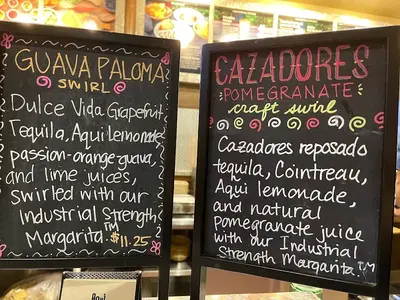 GUAVA PALOMA
SWIRL
Dulce Vida Grapefruit
Tequila, Aqui Lemonade,
passion-orange guava,
and lime juices,
swirled with our
Industrial Strength
Margarita.™ $11.25
CAZADORES
POMEGRANATE
craft swirl
Cazadores reposado
tequila, Cointreau,
Aqui lemonade,
and natural
pomegranate juice
with our Industrial
Strength Margarita.™
Aqui